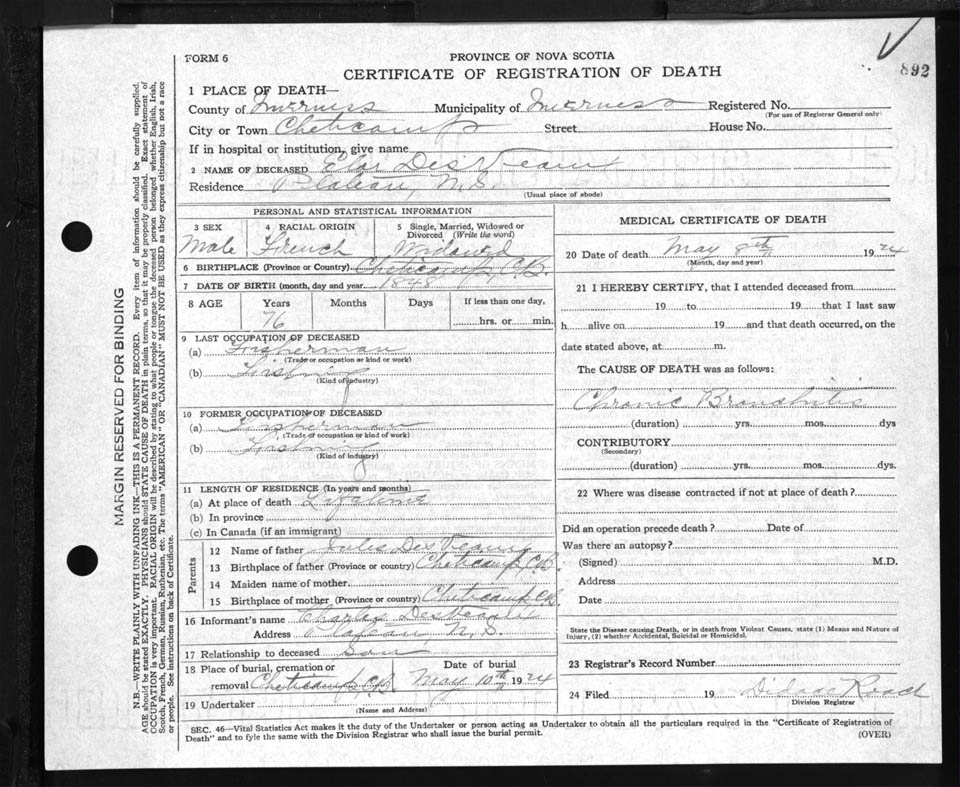 FORM 6
PROVINCE OF NOVA SCOTIA
892
CERTIFICATE OF REGISTRATION OF DEATH
1 PLACE OF DEATH—
County of Inverness Municipality of Inverness Registered No.
(For use of Registrar General only)
City or Town Cheticamp Street House No.
If in hospital or institution, give name
2 NAME OF DECEASED DesVeaux
Residence Plateau, N.S.
(Usual place of abode)
PERSONAL AND STATISTICAL INFORMATION
3 SEX 4 RACIAL ORIGIN 5 Single, Married, Widowed or Divorced (Write the word)
Male French Widowed
6 BIRTHPLACE (Province or Country) Cheticamp, C.B.
7 DATE OF BIRTH (month, day and year) 1848
8 AGE Years Months Days If less than one day,
76 hrs. or min.
9 LAST OCCUPATION OF DECEASED
(a) Fisherman
(Trade or occupation or kind or work)
(b) Fishing
(Kind of industry)
10 FORMER OCCUPATION OF DECEASED
(a) Fisherman
(Trade or occupation or kind of work)
(b) Fishing
(Kind of industry)
11 LENGTH OF RESIDENCE (In years and months)
(a) At place of death Lifetime
(b) In province
(c) In Canada (if an immigrant)
Parents
12 Name of father Jules DesVeaux
13 Birthplace of father (Province or country) Cheticamp, C.B.
14 Maiden name of mother
15 Birthplace of mother (Province or country) Cheticamp, C.B.
16 Informant's name Charles DesVeaux
Address Plateau N.S.
17 Relationship to deceased Son
18 Place of burial, cremation or Date of burial
removal Cheticamp C.B. May 10th 1924
19 Undertaker
(Name and Address)
MEDICAL CERTIFICATE OF DEATH
20 Date of death May 8th 1924
(Month, day and year)
21 I HEREBY CERTIFY, that I attended deceased from
19 to 19 that I last saw
h alive on 19 and that death occurred, on the
date stated above, at m.
The CAUSE OF DEATH was as follows:
Chronic Bronchitis
(duration) yrs. mos. dys
CONTRIBUTORY
(Secondary)
(duration) yrs. mos. dys.
22 Where was disease contracted if not at place of death?
Did an operation precede death? Date of
Was there an autopsy?
(Signed) M.D.
Address
Date
State the Disease causing Death, or in death from Violent Causes, state (1) Means and Nature of
Injury, (2) whether Accidental, Suicidal or Homicidal.
23 Registrar's Record Number
24 Filed 19 Roach
Division Registrar
SEC. 46—Vital Statistics Act makes it the duty of the Undertaker or person acting as Undertaker to obtain all the particulars required in the "Certificate of Registration of
Death" and to fyle the same with the Division Registrar who shall issue the burial permit.
(OVER)
MARGIN RESERVED FOR BINDING
N.B.—WRITE PLAINLY WITH UNFADING INK—THIS IS A PERMANENT RECORD. Every item of information should be carefully supplied.
AGE should be stated EXACTLY. PHYSICIANS should STATE CAUSE OF DEATH in plain terms, so that it may be properly classified. Exact statement of
OCCUPATION is very important. RACIAL ORIGIN will be described by stating to what people or tongue the deceased person belonged whether English, Irish,
Scotch, French, German, Russian, Ruthenian, etc. The terms "AMERICAN" OR "CANADIAN" MUST NOT BE USED as they express citizenship but not a race
or people. See instructions on back of Certificate.